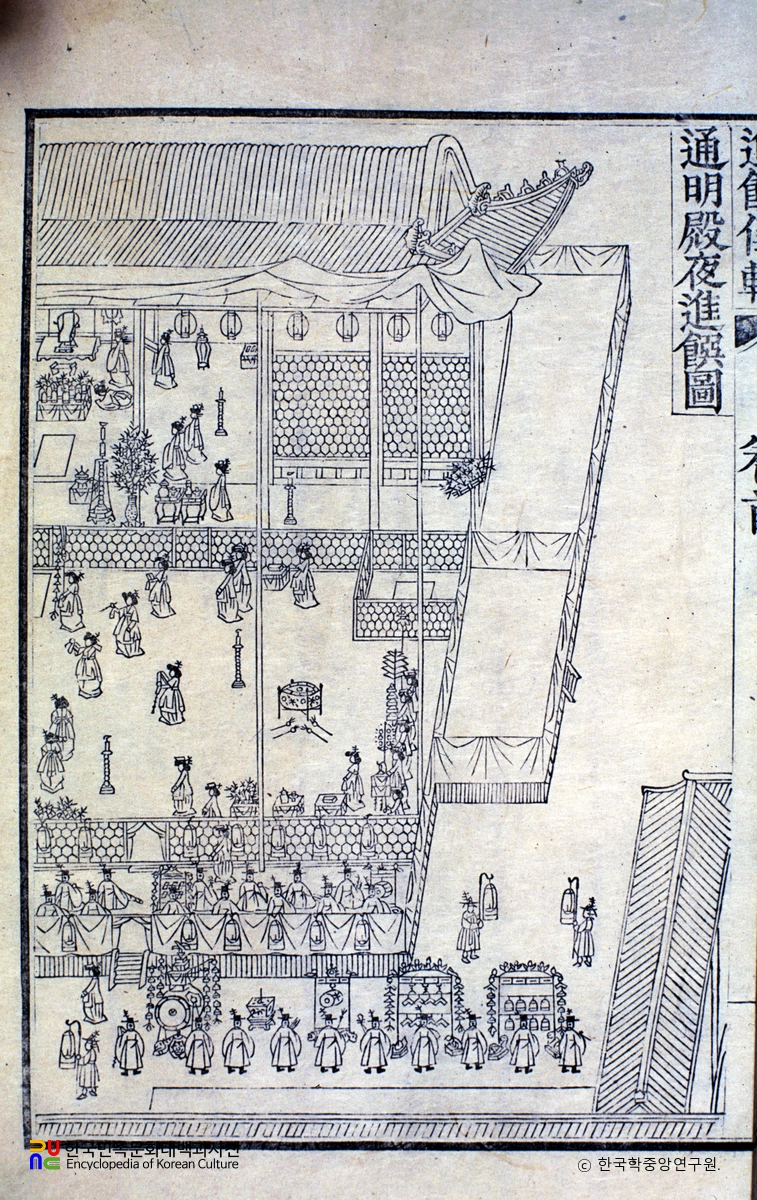 進饌儀軌
卷首
通明殿夜進饌圖
한국민족문화대백과사전
Encyclopedia of Korean Culture
© 한국학중앙연구원.